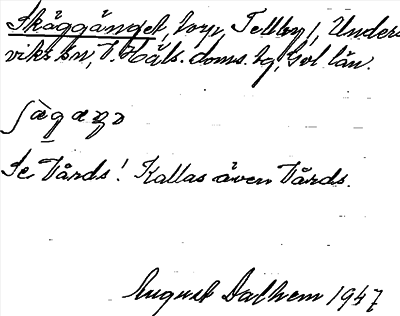 Skäggänget, torp, Tellby, Unders-
viks sn, V. Häls. doms. hg, Gvl. län.
Se Vårds! Kallas även Vårds.
August Dalhem 1947